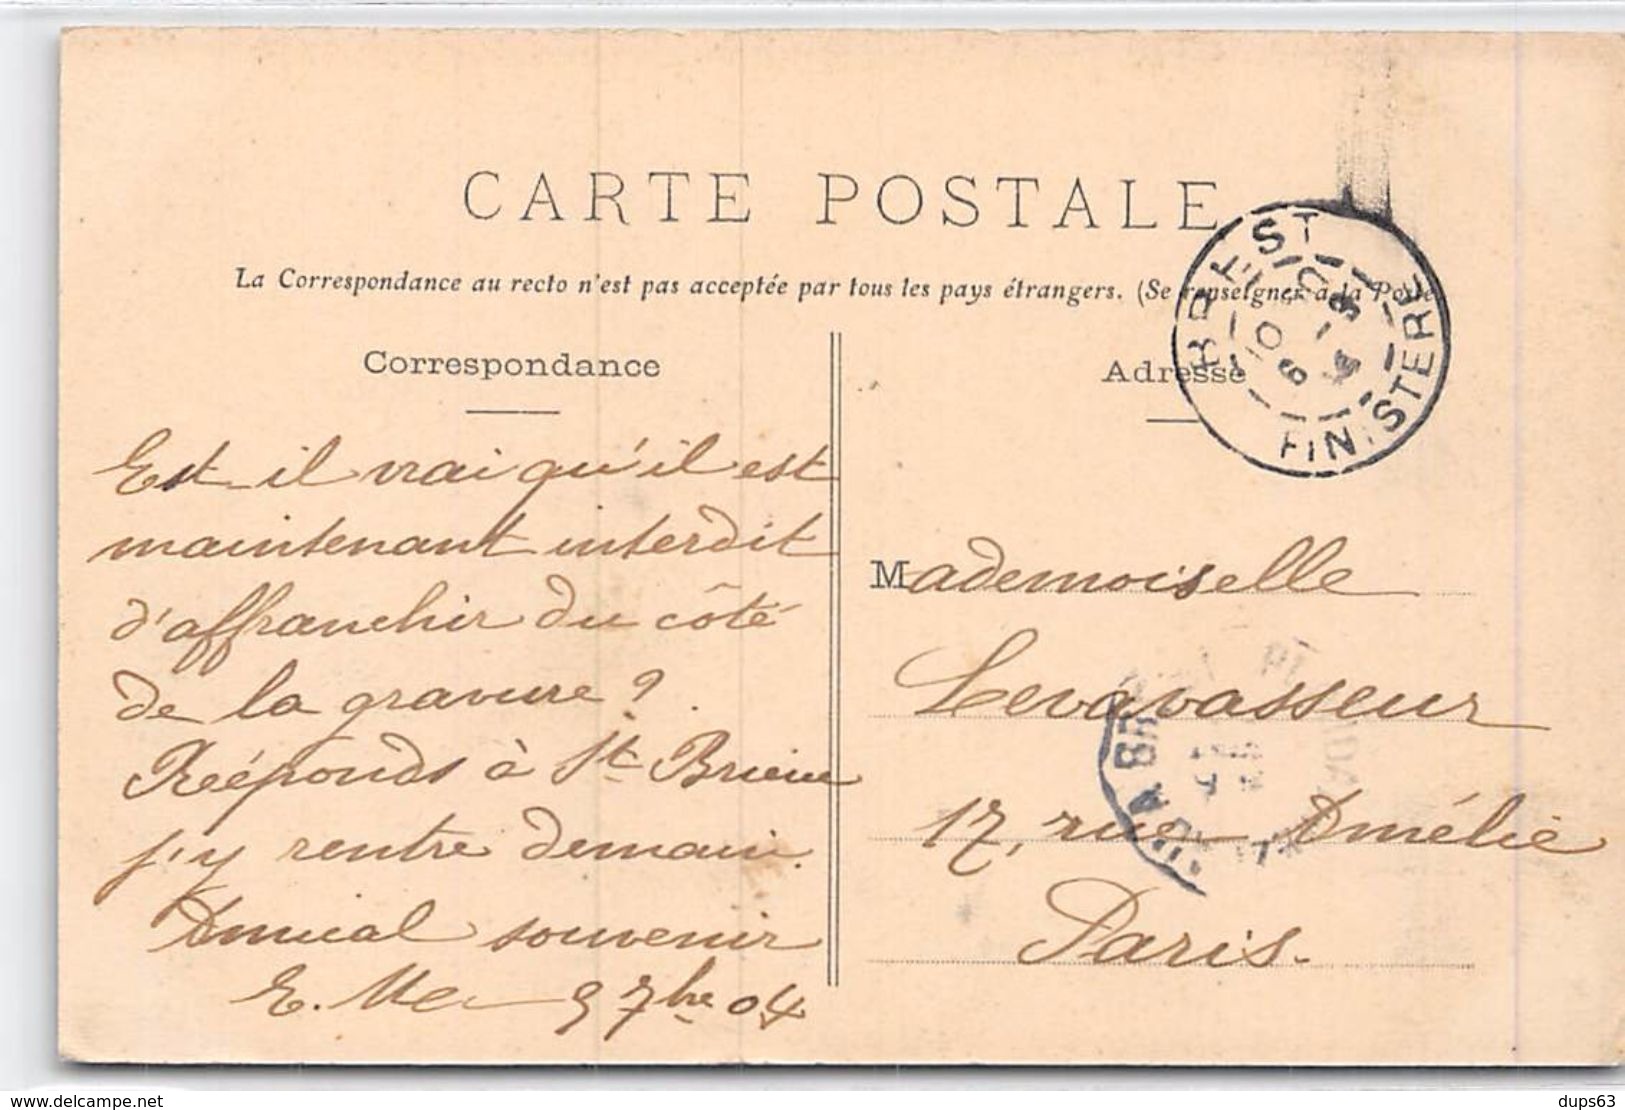 CARTE POSTALE
La Correspondance au recto n'est pas acceptée par tous les pays étrangers. (Se renseigner à la Poste
Correspondance
Est-il vrai qu'il est
maintenant interdit
d'affranchir du côté
de la gravure ?
Réponds à St Brieuc
j'y rentre demain.
Amical souvenir
E. Me 5 7bre 04
Adresse
Mademoiselle
Levavasseur
17, rue Amélie
Paris.
BREST
FINISTERE
www.delcampe.net
dups63